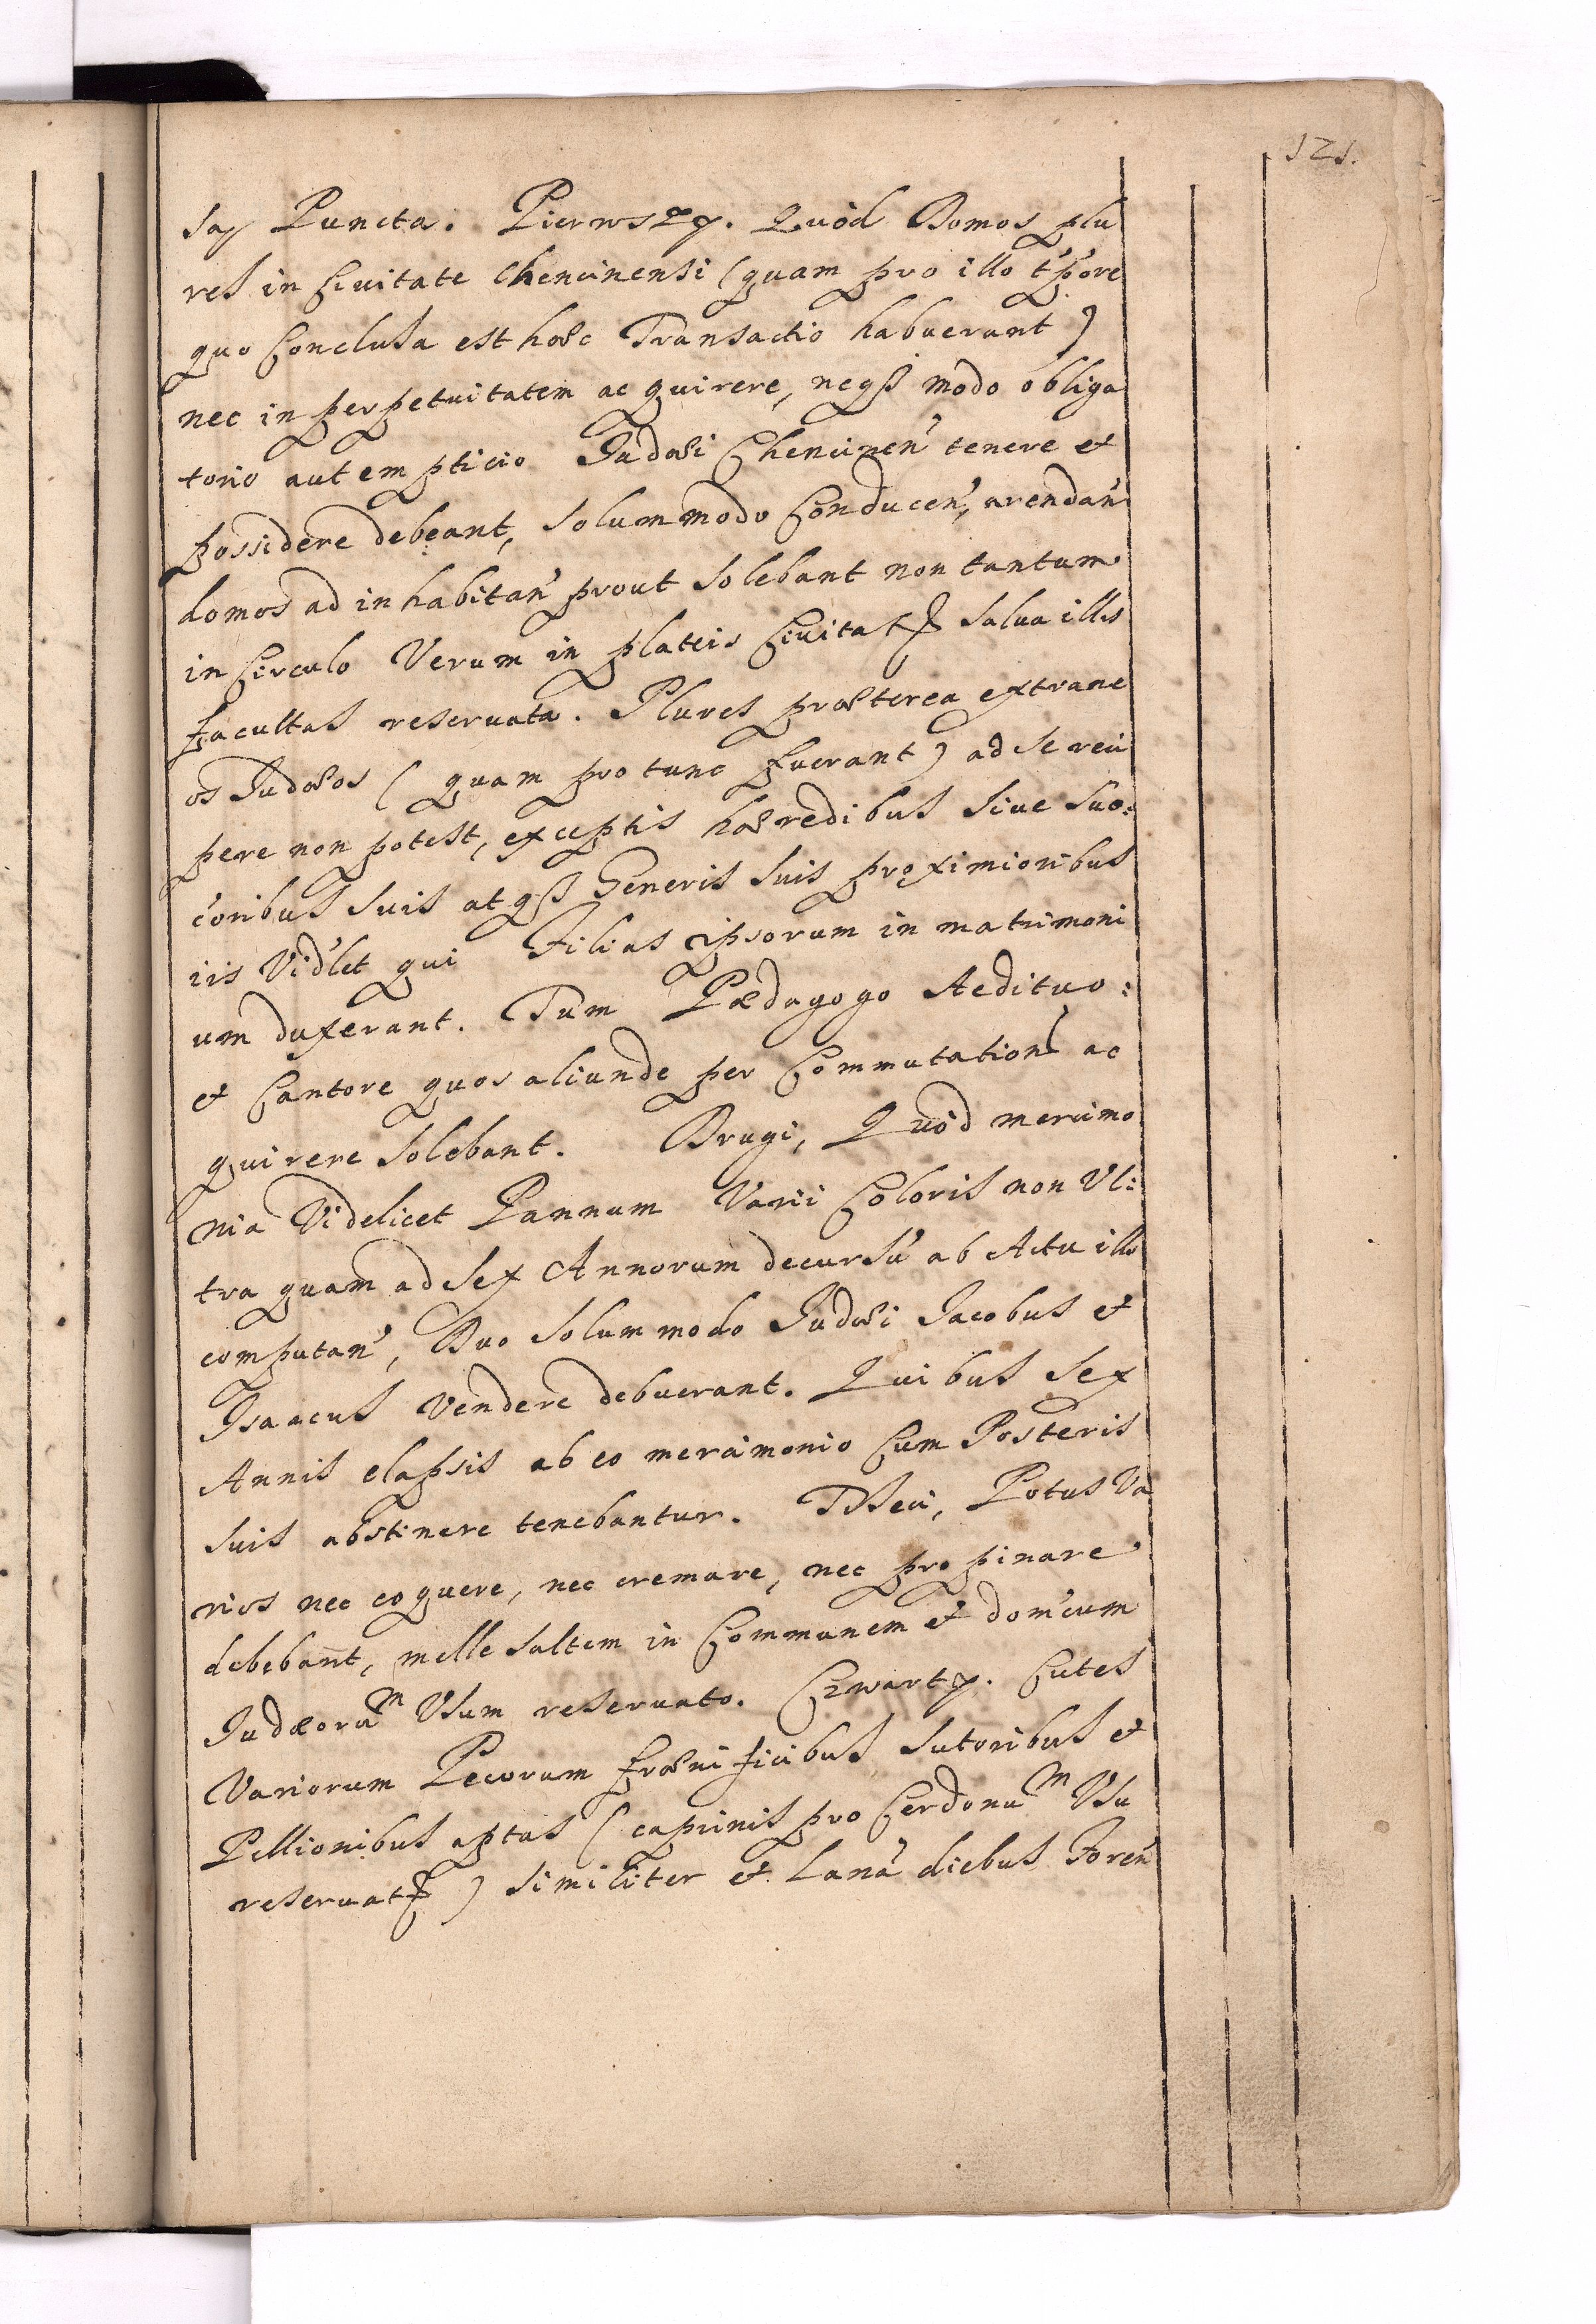 121.
są Puncta. Pierwszy. Quòd Domos plu
res in Ciuitate Chencinensi (quam pro illo t'pore
quo Conclusa est hæc Transactio habuerunt)
nec in perpetuitatem acquirere, neq3 modo obliga
torio aut emptitio Judæi Chencinen' tenere et
possidere debeant, solummodo Conducen', arendan'
domos ad inhabitan' prout solebant non tantum
in Circulo Verum in plateis Ciuitatis salua illis
facultas reseruata. Plures præterea extrane
os Judæos (quam pro tunc fuerant) ad se reci
pere non potest, exceptis hæredibus siue suc:
c'oribus suis atq3 Generis suis proximioribus
iis Vid'let qui Filias ipsorum in matrimoni
um duxerant. Tum Pædagogo Aedituo:
et Cantore quos aliunde per Commutationes ac
quirere solebant. Drugi, Quòd mercimo
nia Videlicet Pannum Varii Coloris non Vl:
tra quam ad sex Annorum decursu' ab Actu illo
computan', Duo solummodo Judæi Jacobus et
Isaacus Vendere debuerant. Quibus sex
Annis elapsis ab eo mercimonio Cum Posteris
suis abstinere tenebantur. Trzeci, Potus Va
rios nec coquere, nec cremare, nec propinare
debebant, melle saltem in Communem et dom'cum
Judæorum Vsum reseruato. Czwarty. Cutes
Variorum Pecorum frænificibus sutoribus et
Pellionibus aptas (caprinis pro Cerdonum Vsu
reseruatis) similiter et Lana' diebus Foren'